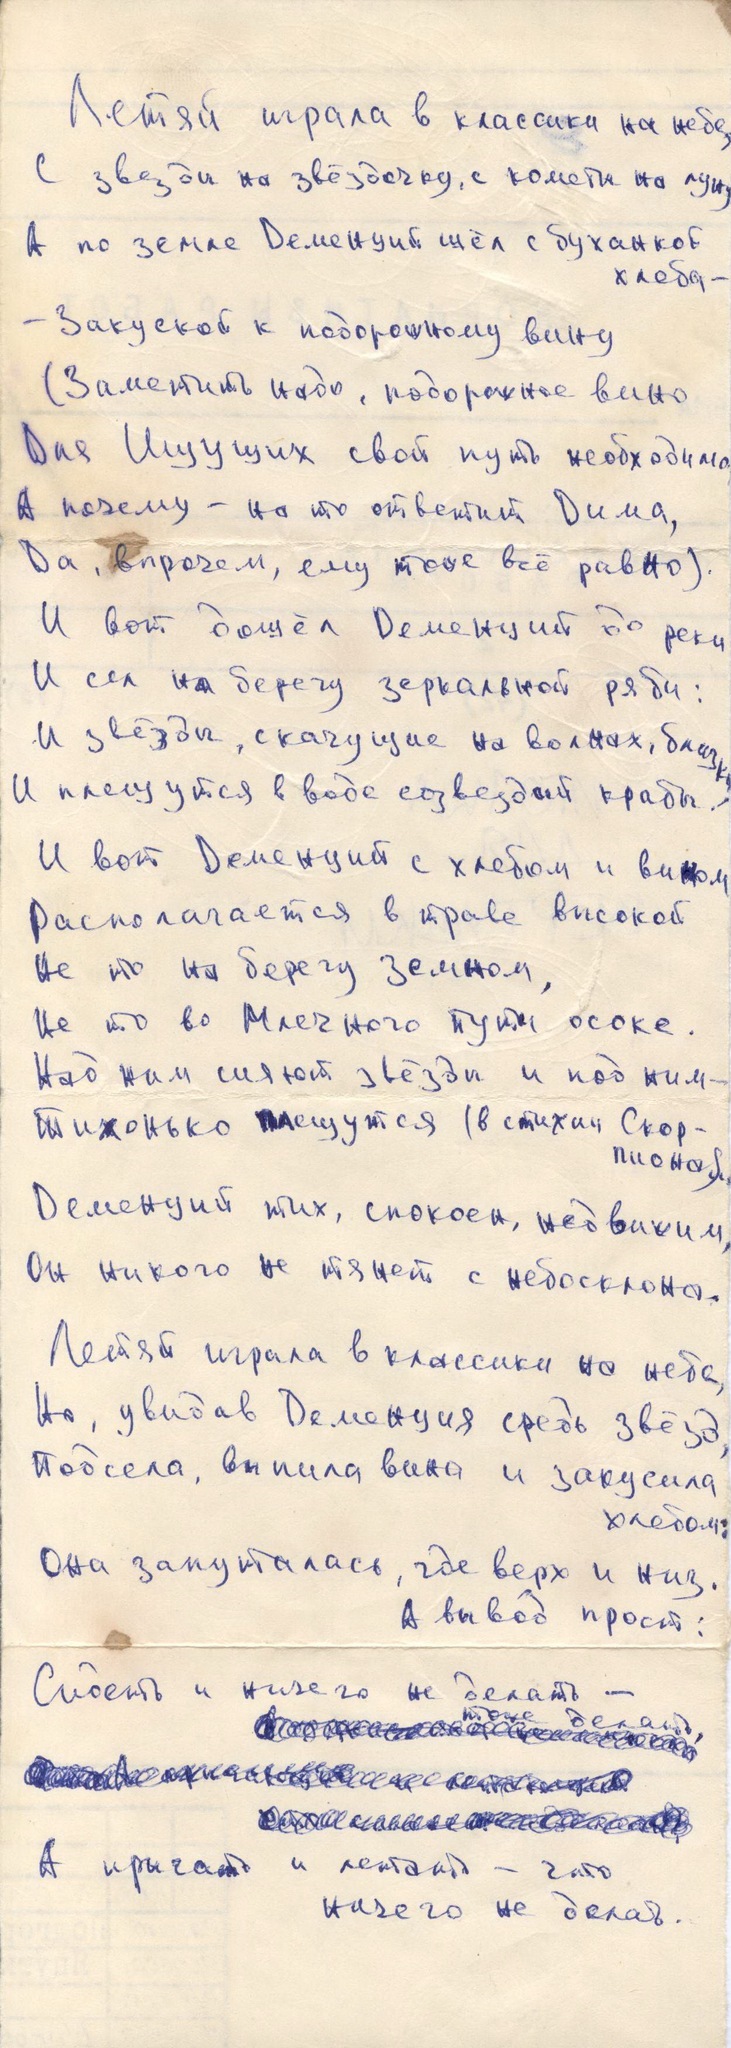 Летяй играла в классики на небе,
С звезды на звёздочку, с кометы на луну
А по земле Деменций шёл с буханкой
хлеба –
– Закуской к подорожному вину
(Заметить надо, подорожное вино
Для Ищущих свой путь необходимо,
А почему – на то ответит Дима,
Да, впрочем, ему тоже всё равно).
И вот дошёл Деменций до реки
И сел на берегу зеркальной ряби:
И звёзды, скачущие на волнах, близки
И плещутся в воде созвездий крабы.
И вот Деменций с хлебом и вином
Располагается в траве высокой
Не то на берегу земном,
Не то во Млечного пути осоке.
Над ним сияют звёзды и под ним –
Тихонько плещутся (в стихии Скор-
пиона).
Деменций тих, спокоен, недвижим,
Он никого не тянет с небосклона.
Летяй играла в классики на небе,
Но, увидав Деменция средь звёзд,
Подсела, выпила вина и закусила
хлебом:
Она запуталась, где верх и низ.
А вывод прост:
Сидеть и ничего не делать –
тоже делать,
А прыгать и летать – что
ничего не делать.